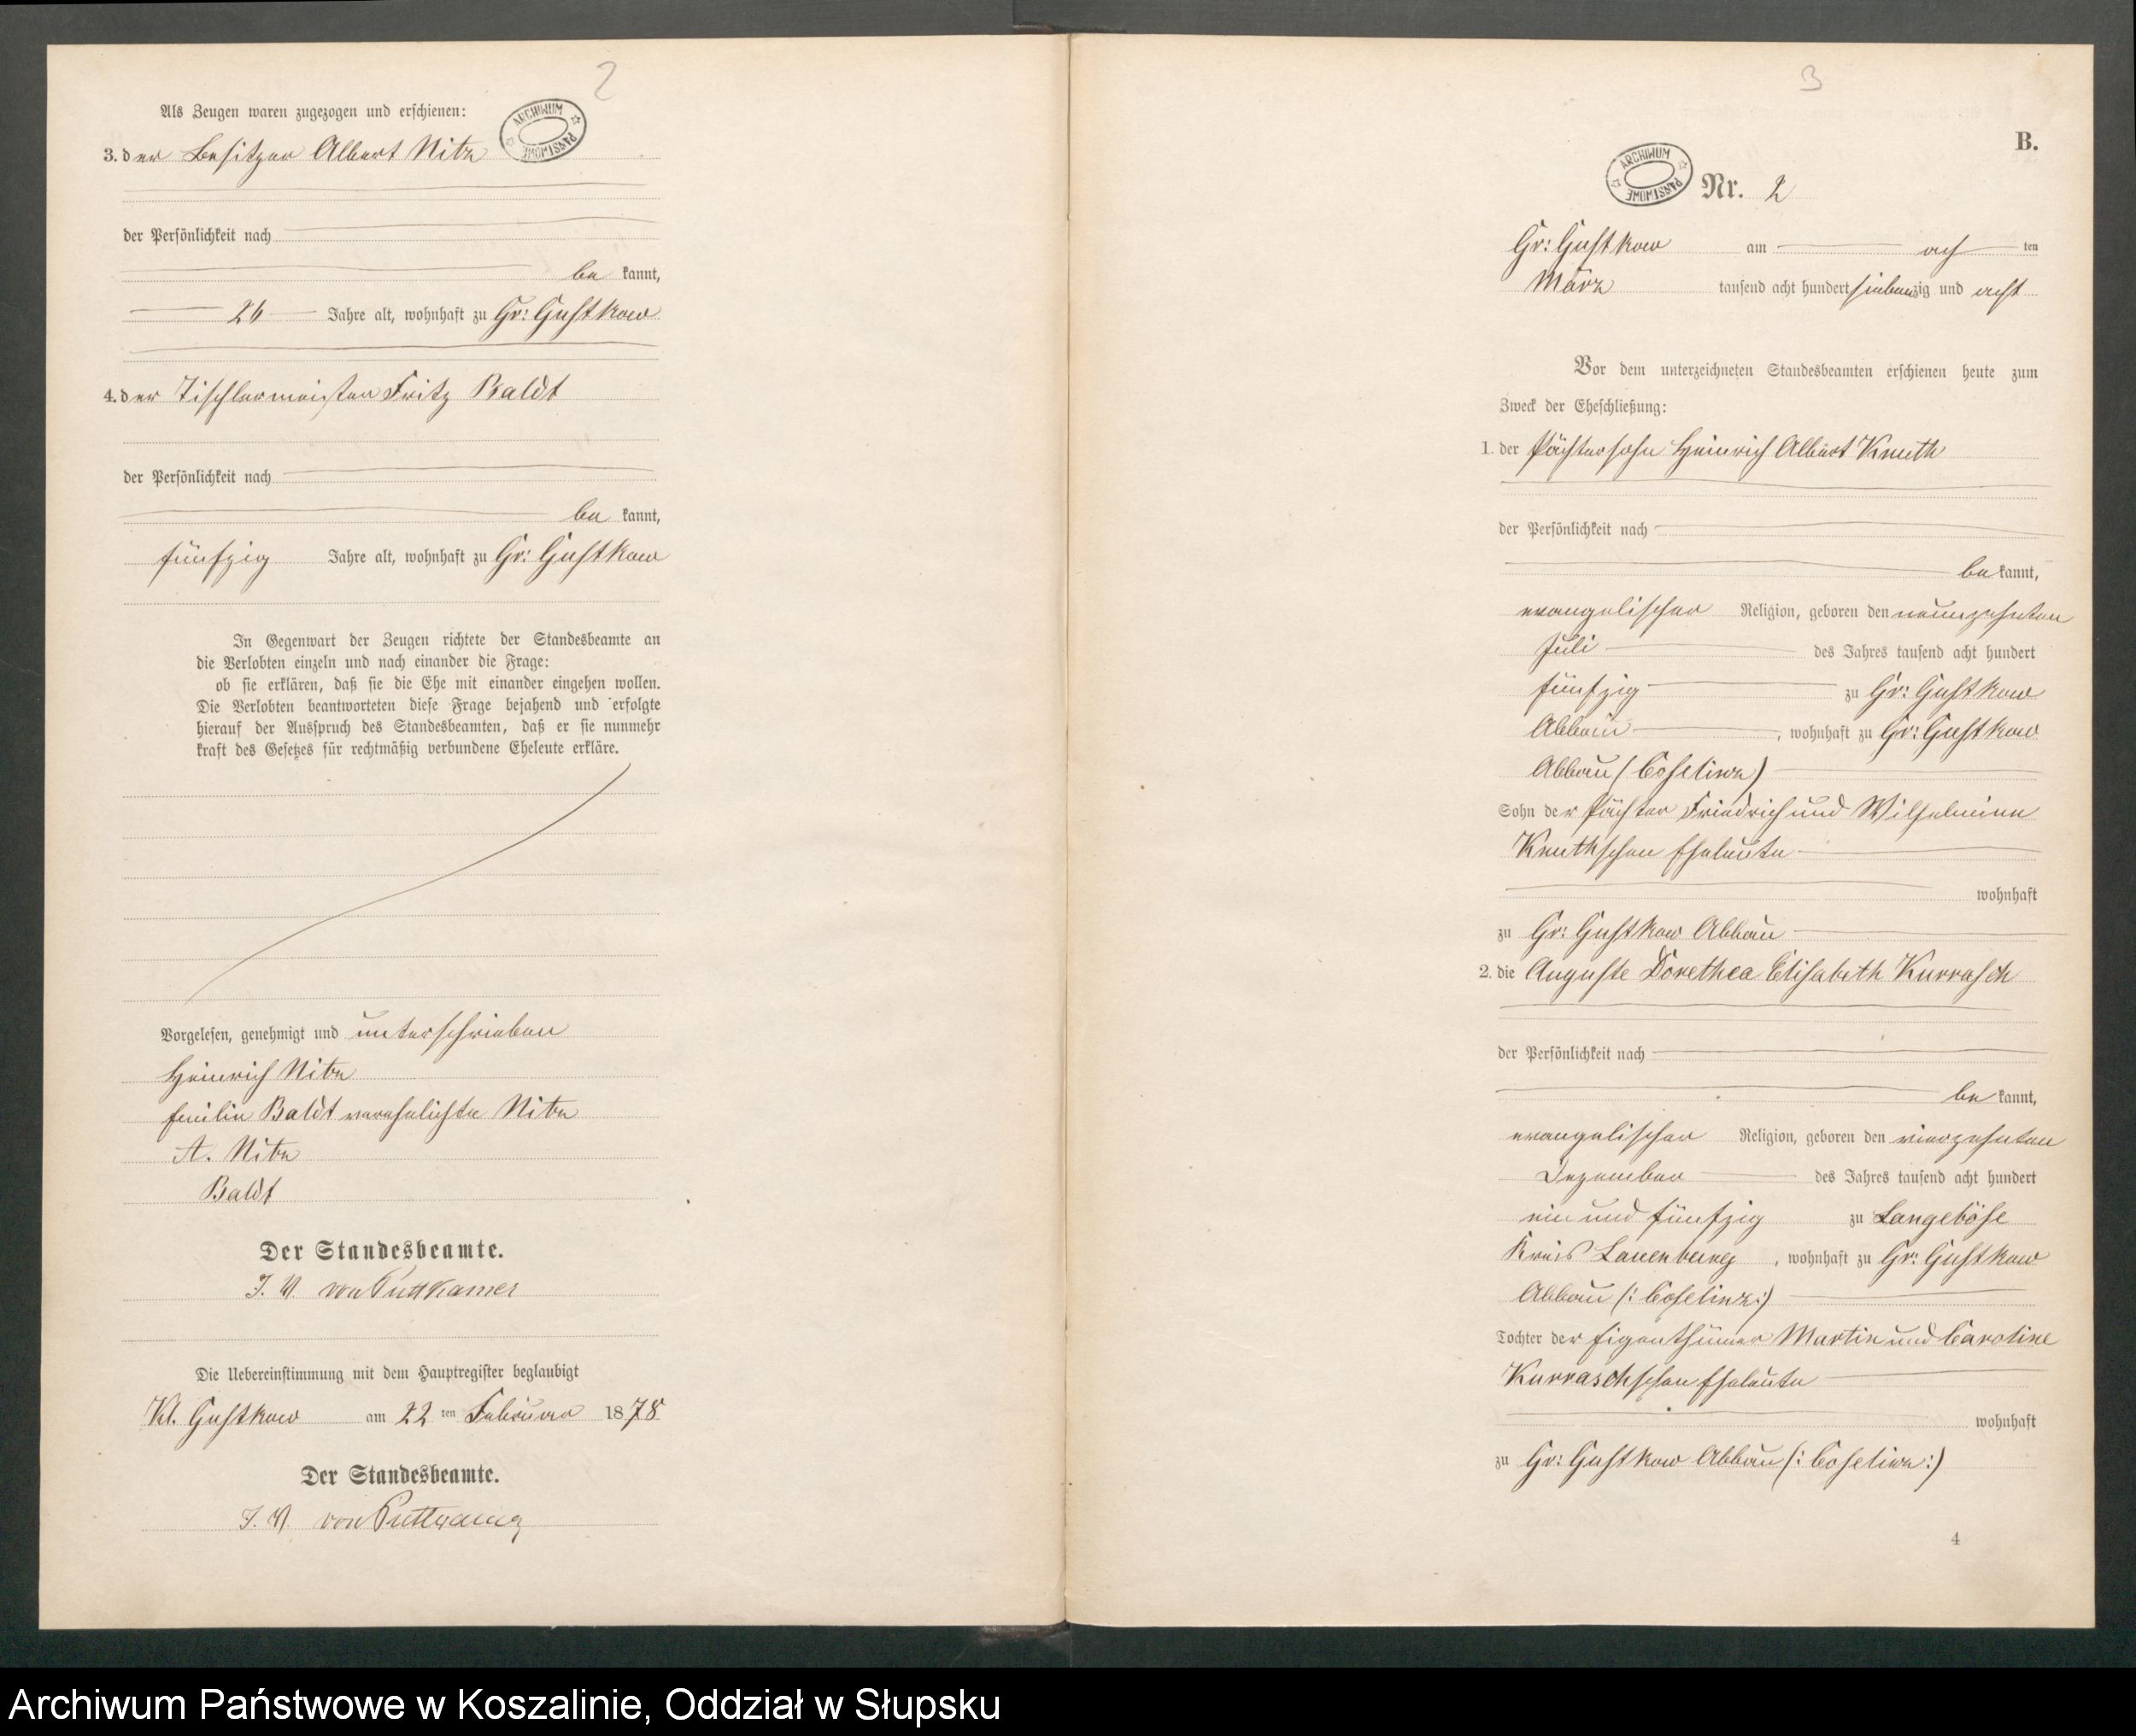 2
Als Zeugen waren zugezogen und erschienen:
ARCHIWUM PAŃSTWOWE
3. der Besitzer Albert Nitz
der Persönlichkeit nach
be kannt,
26 Jahre alt, wohnhaft zu Gr: Gustkow
4. der Tischlermeister Fritz Baldt
der Persönlichkeit nach
be kannt,
fünfzig Jahre alt, wohnhaft zu Gr: Gustkow
In Gegenwart der Zeugen richtete der Standesbeamte an
die Verlobten einzeln und nach einander die Frage:
ob sie erklären, daß sie die Ehe mit einander eingehen wollen.
Die Verlobten beantworteten diese Frage bejahend und erfolgte
hierauf der Ausspruch des Standesbeamten, daß er sie nunmehr
kraft des Gesetzes für rechtmäßig verbundene Eheleute erkläre.
Vorgelesen, genehmigt und unterschrieben
Heinrich Nitz
Emilie Baldt verehelichte Nitz
A. Nitz
Baldt
Der Standesbeamte.
I. V. von Puttkamer
Die Uebereinstimmung mit dem Hauptregister beglaubigt
Kl. Gustkow am 22 ten Februar 1878
Der Standesbeamte.
I. V. von Puttkamer
3
B.
ARCHIWUM PAŃSTWOWE
Nr. 2
Gr: Gustkow am ach ten
März tausend acht hundert siebenzig und acht
Vor dem unterzeichneten Standesbeamten erschienen heute zum
Zweck der Eheschließung:
1. der Pächtersohn Heinrich Albert Knuth
der Persönlichkeit nach
be kannt,
evangelischer Religion, geboren den neunzehnten
Juli des Jahres tausend acht hundert
fünfzig zu Gr: Gustkow
Abbau , wohnhaft zu Gr: Gustkow
Abbau (Coseliz)
Sohn der Pächter Friedrich und Wilhelmine
Knuthschen Eheleute
wohnhaft
zu Gr: Gustkow Abbau
2. die Auguste Dorethea Elisabeth Kurrasch
der Persönlichkeit nach
be kannt,
evangelischer Religion, geboren den vierzehnten
Dezember des Jahres tausend acht hundert
ein und fünfzig zu Langeböse
Kreis Lauenburg , wohnhaft zu Gr: Gustkow
Abbau (: Coseliz :)
Tochter der Eigenthümer Martin und Caroline
Kurraschschen Eheleute
wohnhaft
zu Gr: Gustkow Abbau (: Coseliz :)
4
Archiwum Państwowe w Koszalinie, Oddział w Słupsku